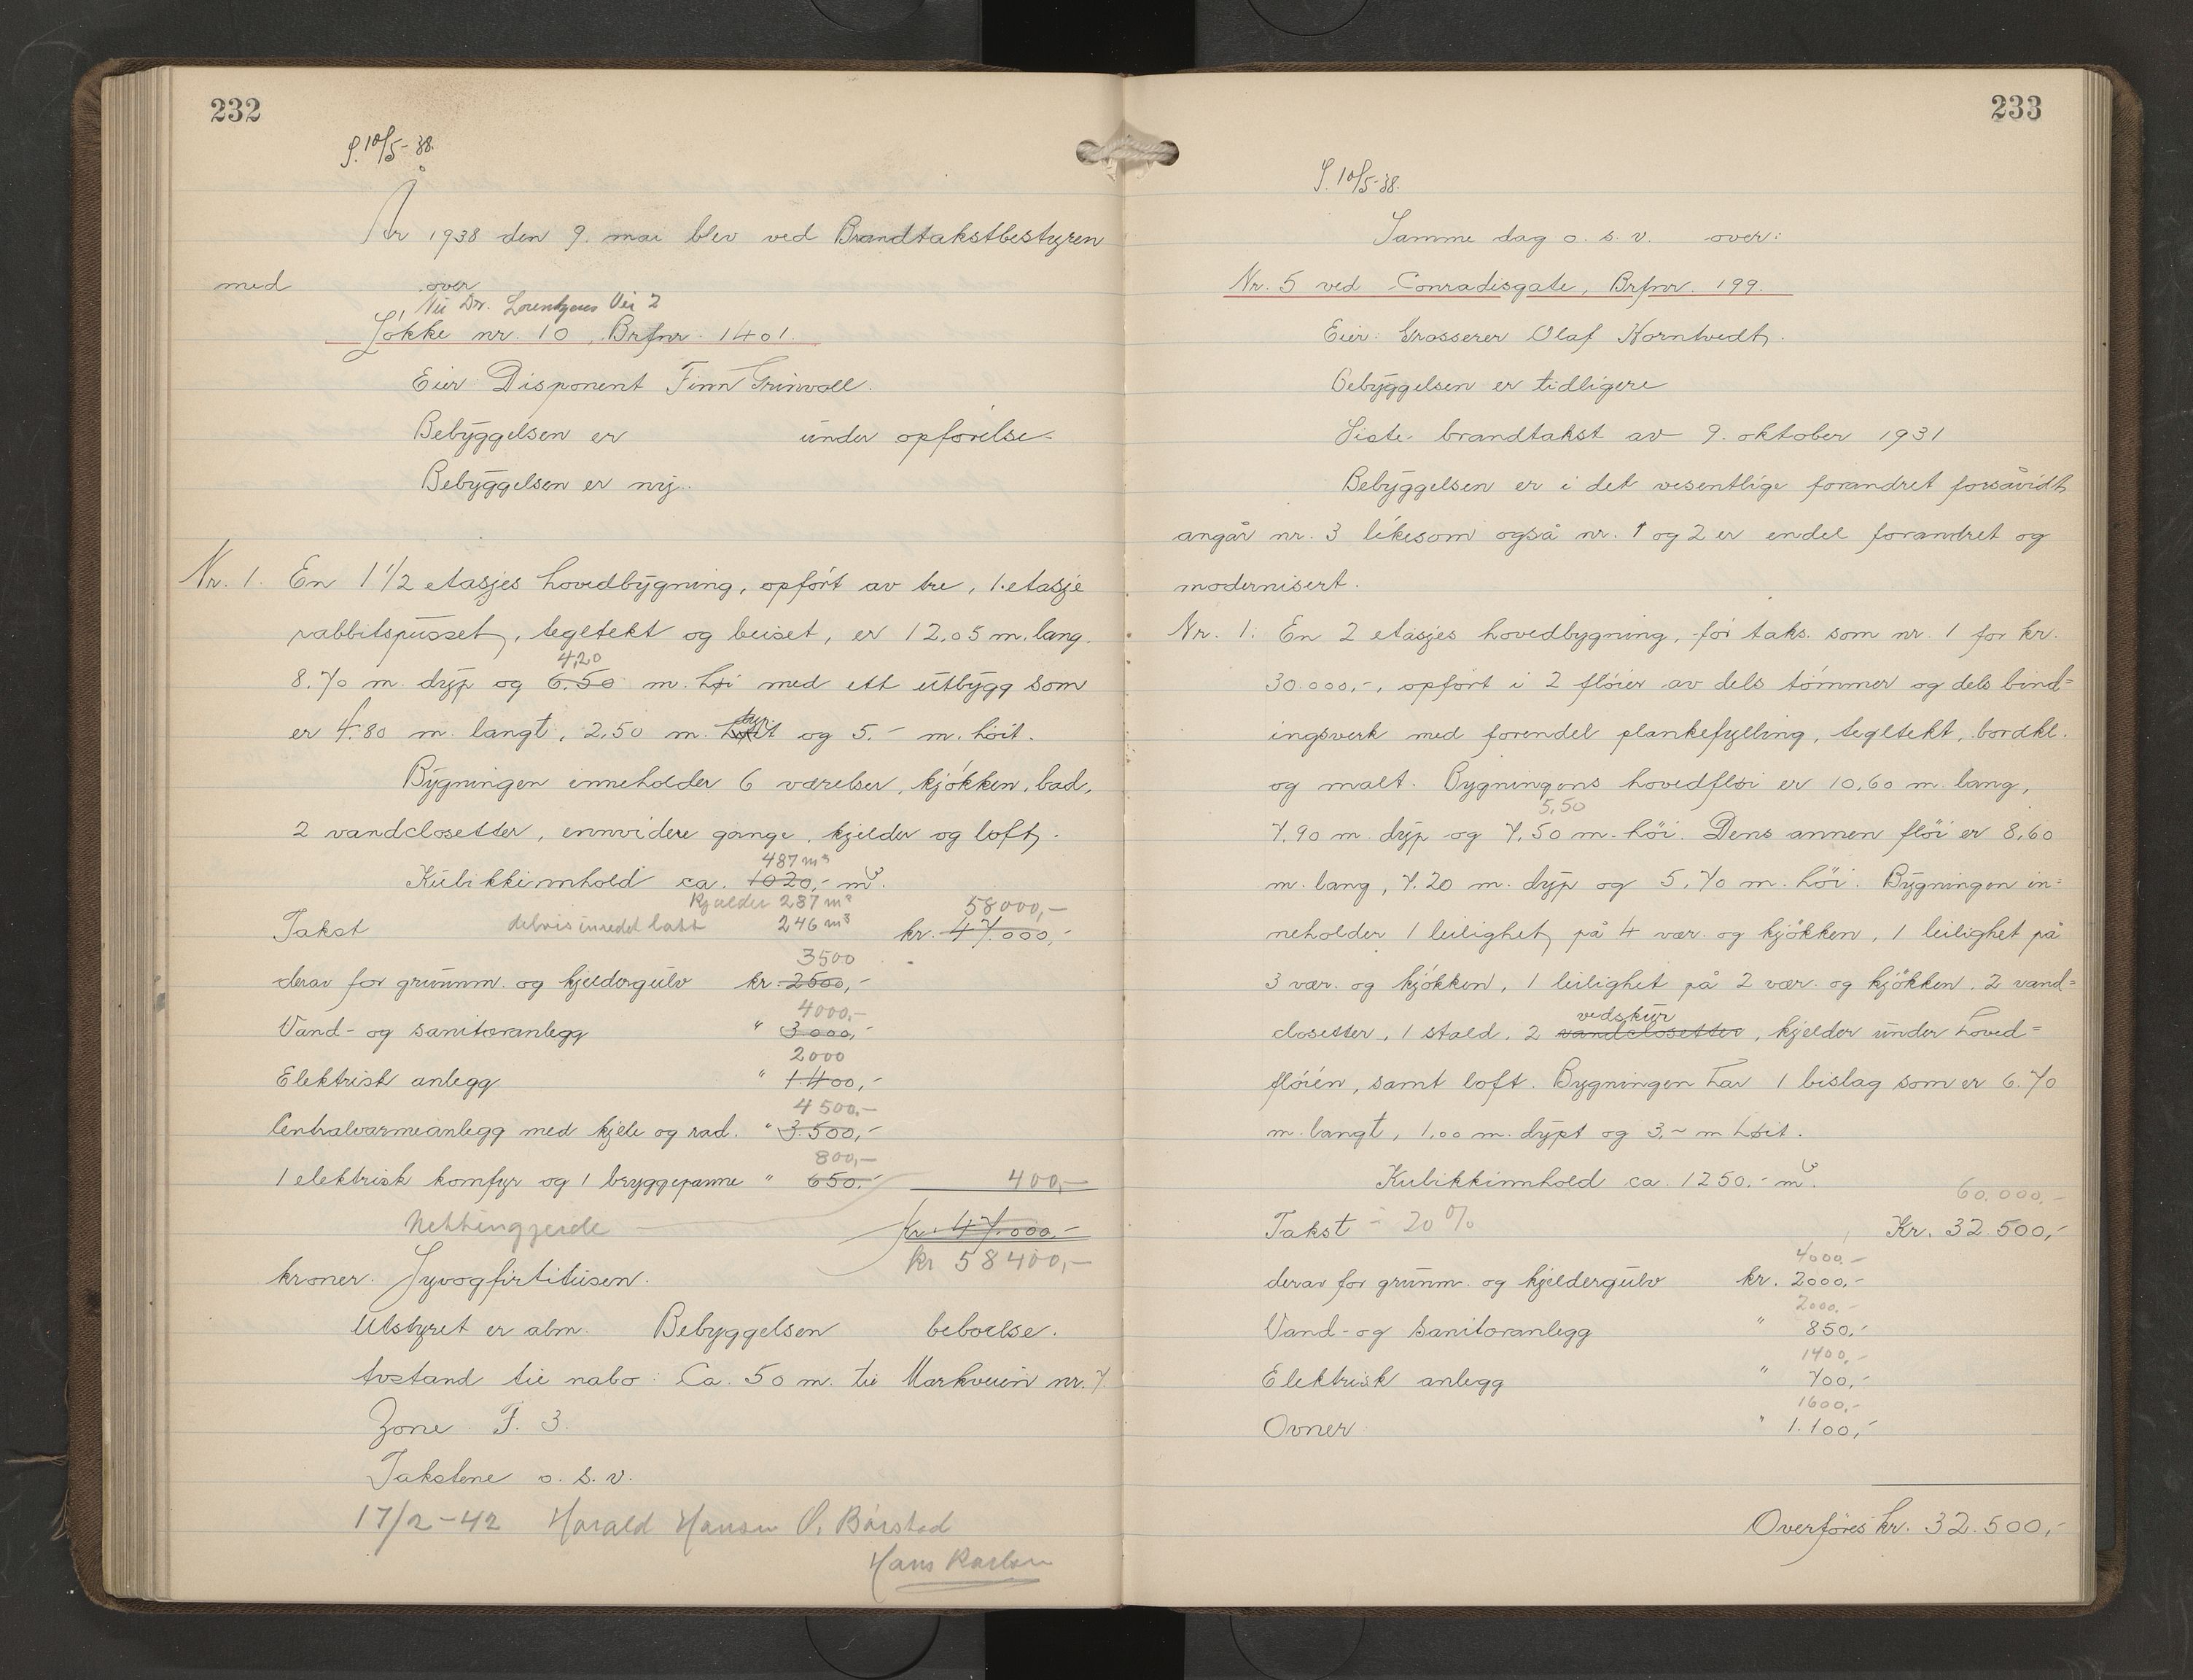 232
S. 10/5-38.
År 1938 den 9. mai blev ved Brandtakstbestyren
med over
Dr. Lorentzens Vei 2
Løkke nr. 10, Brfnr. 1401.
Eier Disponent Finn Grinvoll.
Bebyggelsen er under opførelse.
Bebyggelsen er ny.
Nr. 1. En 1 1/2 etasjes hovedbygning, opført av tre, 1. etasje
rabbitspusset, tegltekt og beiset, er 12,05 m. lang.
4,20
8.70 m. dyp og 6.50 m. høi med ett utbygg som
er 4.80 m. langt, 2,50 m. dypt og 5.- m. høit.
Bygningen inneholder 6 værelser, kjøkken, bad,
2 vandclosetter, ennvidere gange, kjelder og loft.
487 m³
Kubikkinnhold ca. 1020,- m³.
Kjælder 287 m³ 58000,-
Takst delvis innredet loft 246 m³ kr. 47.000,-
3500
derav for grunnm. og kjeldergulv kr. 2500,-
4000,-
Vand- og sanitæranlegg " 3000,-
2000
Elektrisk anlegg " 1.400,-
4500,-
Centralvarmeanlegg med kjele og rad. " 3.500,-
800,-
1 elektrisk komfyr og 1 bryggepanne " 650.- 400,-
Nettinggjerde Kr. 47.000,-
kr 58400,-
kroner. Syvogfirtitusen.
Utstyret er alm. Bebyggelsen beboelse.
Avstand til nabo: Ca. 50 m. til Markveien nr. 7
Zone F. 3.
Takstene o. s. v.
17/2-42 Harald Hansen O. Børstad
Hans Karlsen
233
S. 10/5-38.
Samme dag o. s. v. over:
Nr. 5 ved Conradisgate, Brfnr. 199.
Eier: Grosserer Olaf Horntvedt.
Bebyggelsen er tidligere
Siste brandtakst av 9. oktober 1931
Bebyggelsen er i det vesentlige forandret forsåvidt
angår nr. 3 likesom også nr. 1 og 2 er endel forandret og
modernisert.
Nr. 1. En 2 etasjes hovedbygning, før taks. som nr. 1 for kr.
30.000,-, opført i 2 fløier av dels tømmer og dels bind=
ingsverk med forendel plankefylling, tegltekt, bordkl.
og malt. Bygningens hovedfløi er 10,60 m. lang,
5,50
7.90 m. dyp og 7,50 m. høi. Dens annen fløi er 8,60
m. lang, 7.20 m. dyp og 5,70 m. høi. Bygningen in=
neholder 1 leilighet på 4 vær. og kjøkken, 1 leilighet på
3 vær. og kjøkken, 1 leilighet på 2 vær. og kjøkken, 2 vand=
vedskur
closetter, 1 stald, 2 vandclosetter, kjelder under hoved=
fløien, samt loft. Bygningen har 1 bislag som er 6.70
m. langt, 1,00 m. dypt og 3.- m høit.
Kubikkinnhold ca. 1250.- m³.
60.000,-
Takst - 20% Kr. 32.500,-
4000,-
derav for grunm. og kjeldergulv kr. 2000,-
2000,-
Vand- og sanitæranlegg " 850,-
1400,-
Elektrisk anlegg " 700,-
1600,-
Ovner " 1.100,-
Overføres kr. 32.500,-